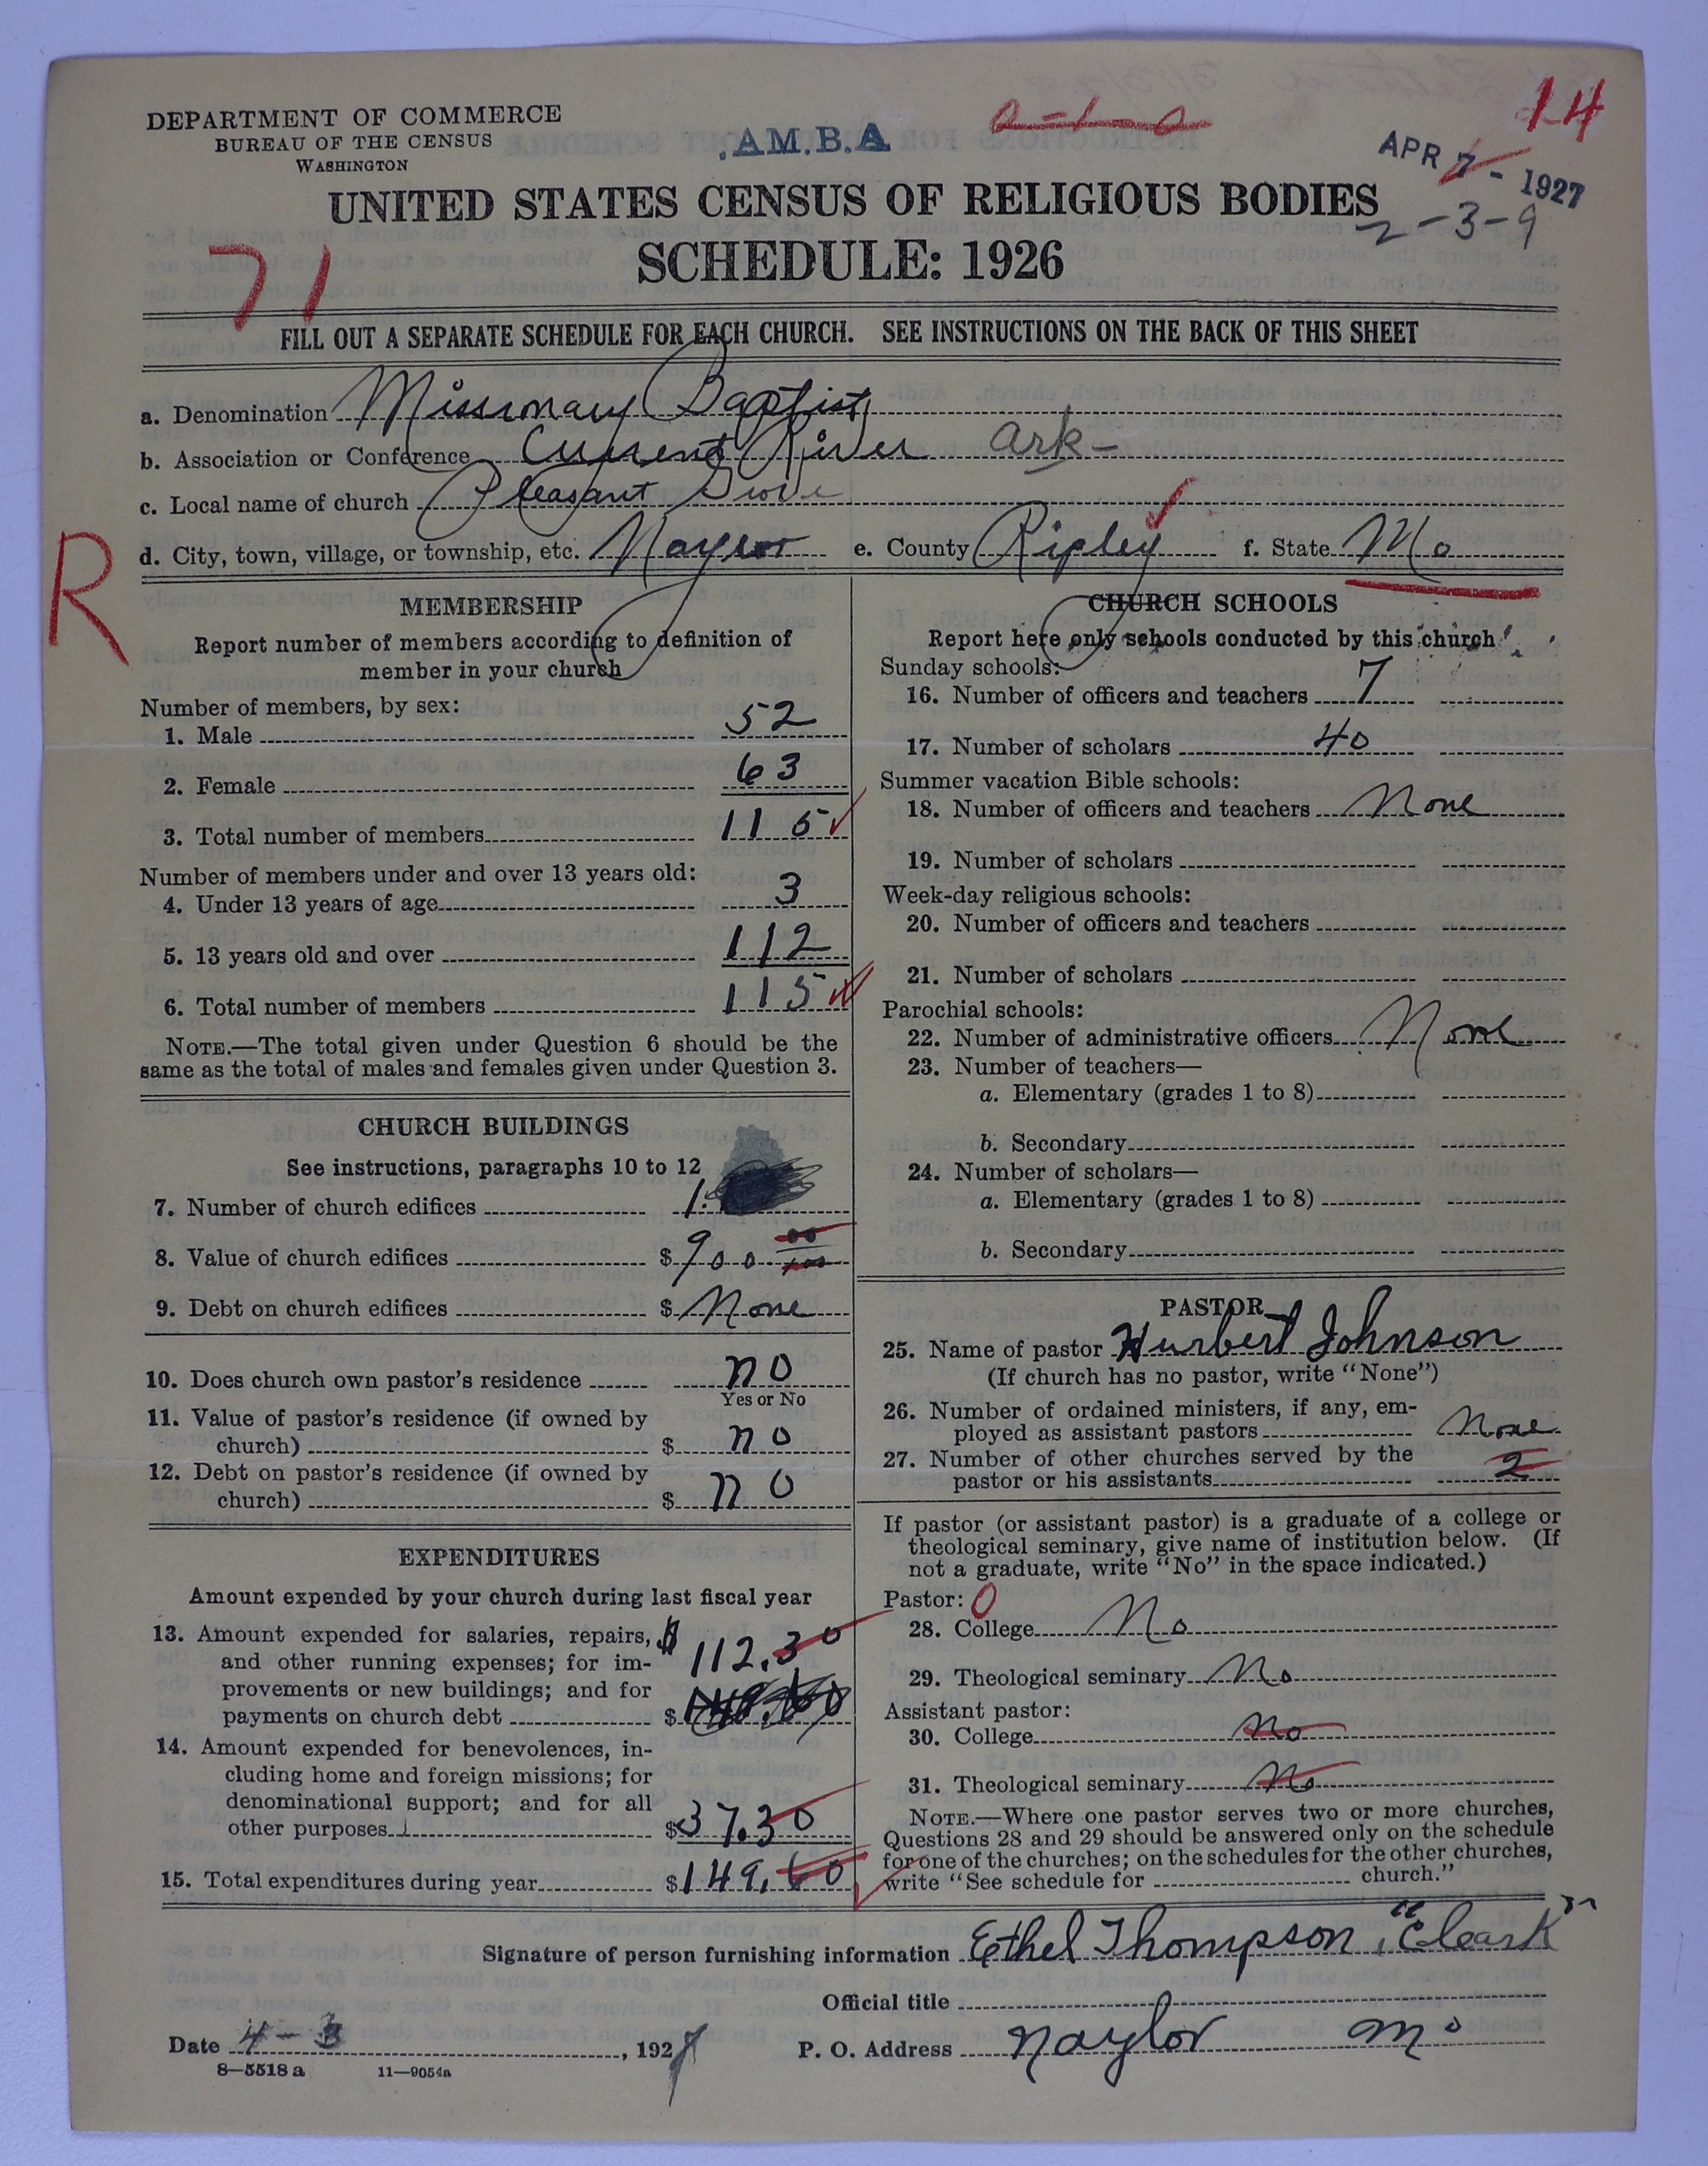 DEPARTMENT OF COMMERCE
BUREAU OF THE CENSUS
WASHINGTON
.A.M.B.A
14
APR 7 - 1927
UNITED STATES CENSUS OF RELIGIOUS BODIES
2-3-9
71
SCHEDULE: 1926
FILL OUT A SEPARATE SCHEDULE FOR EACH CHURCH. SEE INSTRUCTIONS ON THE BACK OF THIS SHEET
a. Denomination Missionary Baptist
b. Association or Conference Current River Ark-
c. Local name of church Pleasant Grove
R
d. City, town, village, or township, etc. Naylor e. County Ripley f. State Mo
MEMBERSHIP
Report number of members according to definition of
member in your church
Number of members, by sex:
1. Male 52
2. Female 63
3. Total number of members 115
Number of members under and over 13 years old:
4. Under 13 years of age 3
5. 13 years old and over 112
6. Total number of members 115
NOTE.—The total given under Question 6 should be the
same as the total of males and females given under Question 3.
CHURCH BUILDINGS
See instructions, paragraphs 10 to 12
7. Number of church edifices 1
8. Value of church edifices $900 00
9. Debt on church edifices $ None
10. Does church own pastor's residence no
Yes or No
11. Value of pastor's residence (if owned by
church) $ no
12. Debt on pastor's residence (if owned by
church) $ no
EXPENDITURES
Amount expended by your church during last fiscal year
13. Amount expended for salaries, repairs, $ 112.30
and other running expenses; for im-
provements or new buildings; and for
payments on church debt $
14. Amount expended for benevolences, in-
cluding home and foreign missions; for
denominational support; and for all
other purposes $37.30
15. Total expenditures during year $149.60
CHURCH SCHOOLS
Report here only schools conducted by this church
Sunday schools:
16. Number of officers and teachers 7
17. Number of scholars 40
Summer vacation Bible schools:
18. Number of officers and teachers None
19. Number of scholars
Week-day religious schools:
20. Number of officers and teachers
21. Number of scholars
Parochial schools:
22. Number of administrative officers None
23. Number of teachers—
a. Elementary (grades 1 to 8)
b. Secondary
24. Number of scholars—
a. Elementary (grades 1 to 8)
b. Secondary
PASTOR
25. Name of pastor Hurbert Johnson
(If church has no pastor, write "None")
26. Number of ordained ministers, if any, em-
ployed as assistant pastors None
27. Number of other churches served by the
pastor or his assistants 2
If pastor (or assistant pastor) is a graduate of a college or
theological seminary, give name of institution below. (If
not a graduate, write "No" in the space indicated.)
Pastor: 0
28. College No
29. Theological seminary No
Assistant pastor:
30. College No
31. Theological seminary No
NOTE.—Where one pastor serves two or more churches,
Questions 28 and 29 should be answered only on the schedule
for one of the churches; on the schedules for the other churches,
write "See schedule for church."
Signature of person furnishing information Ethel Thompson, "Cleark"
Official title
Date 4-3, 1927 P. O. Address Naylor Mo
8—5518 a 11—9054a